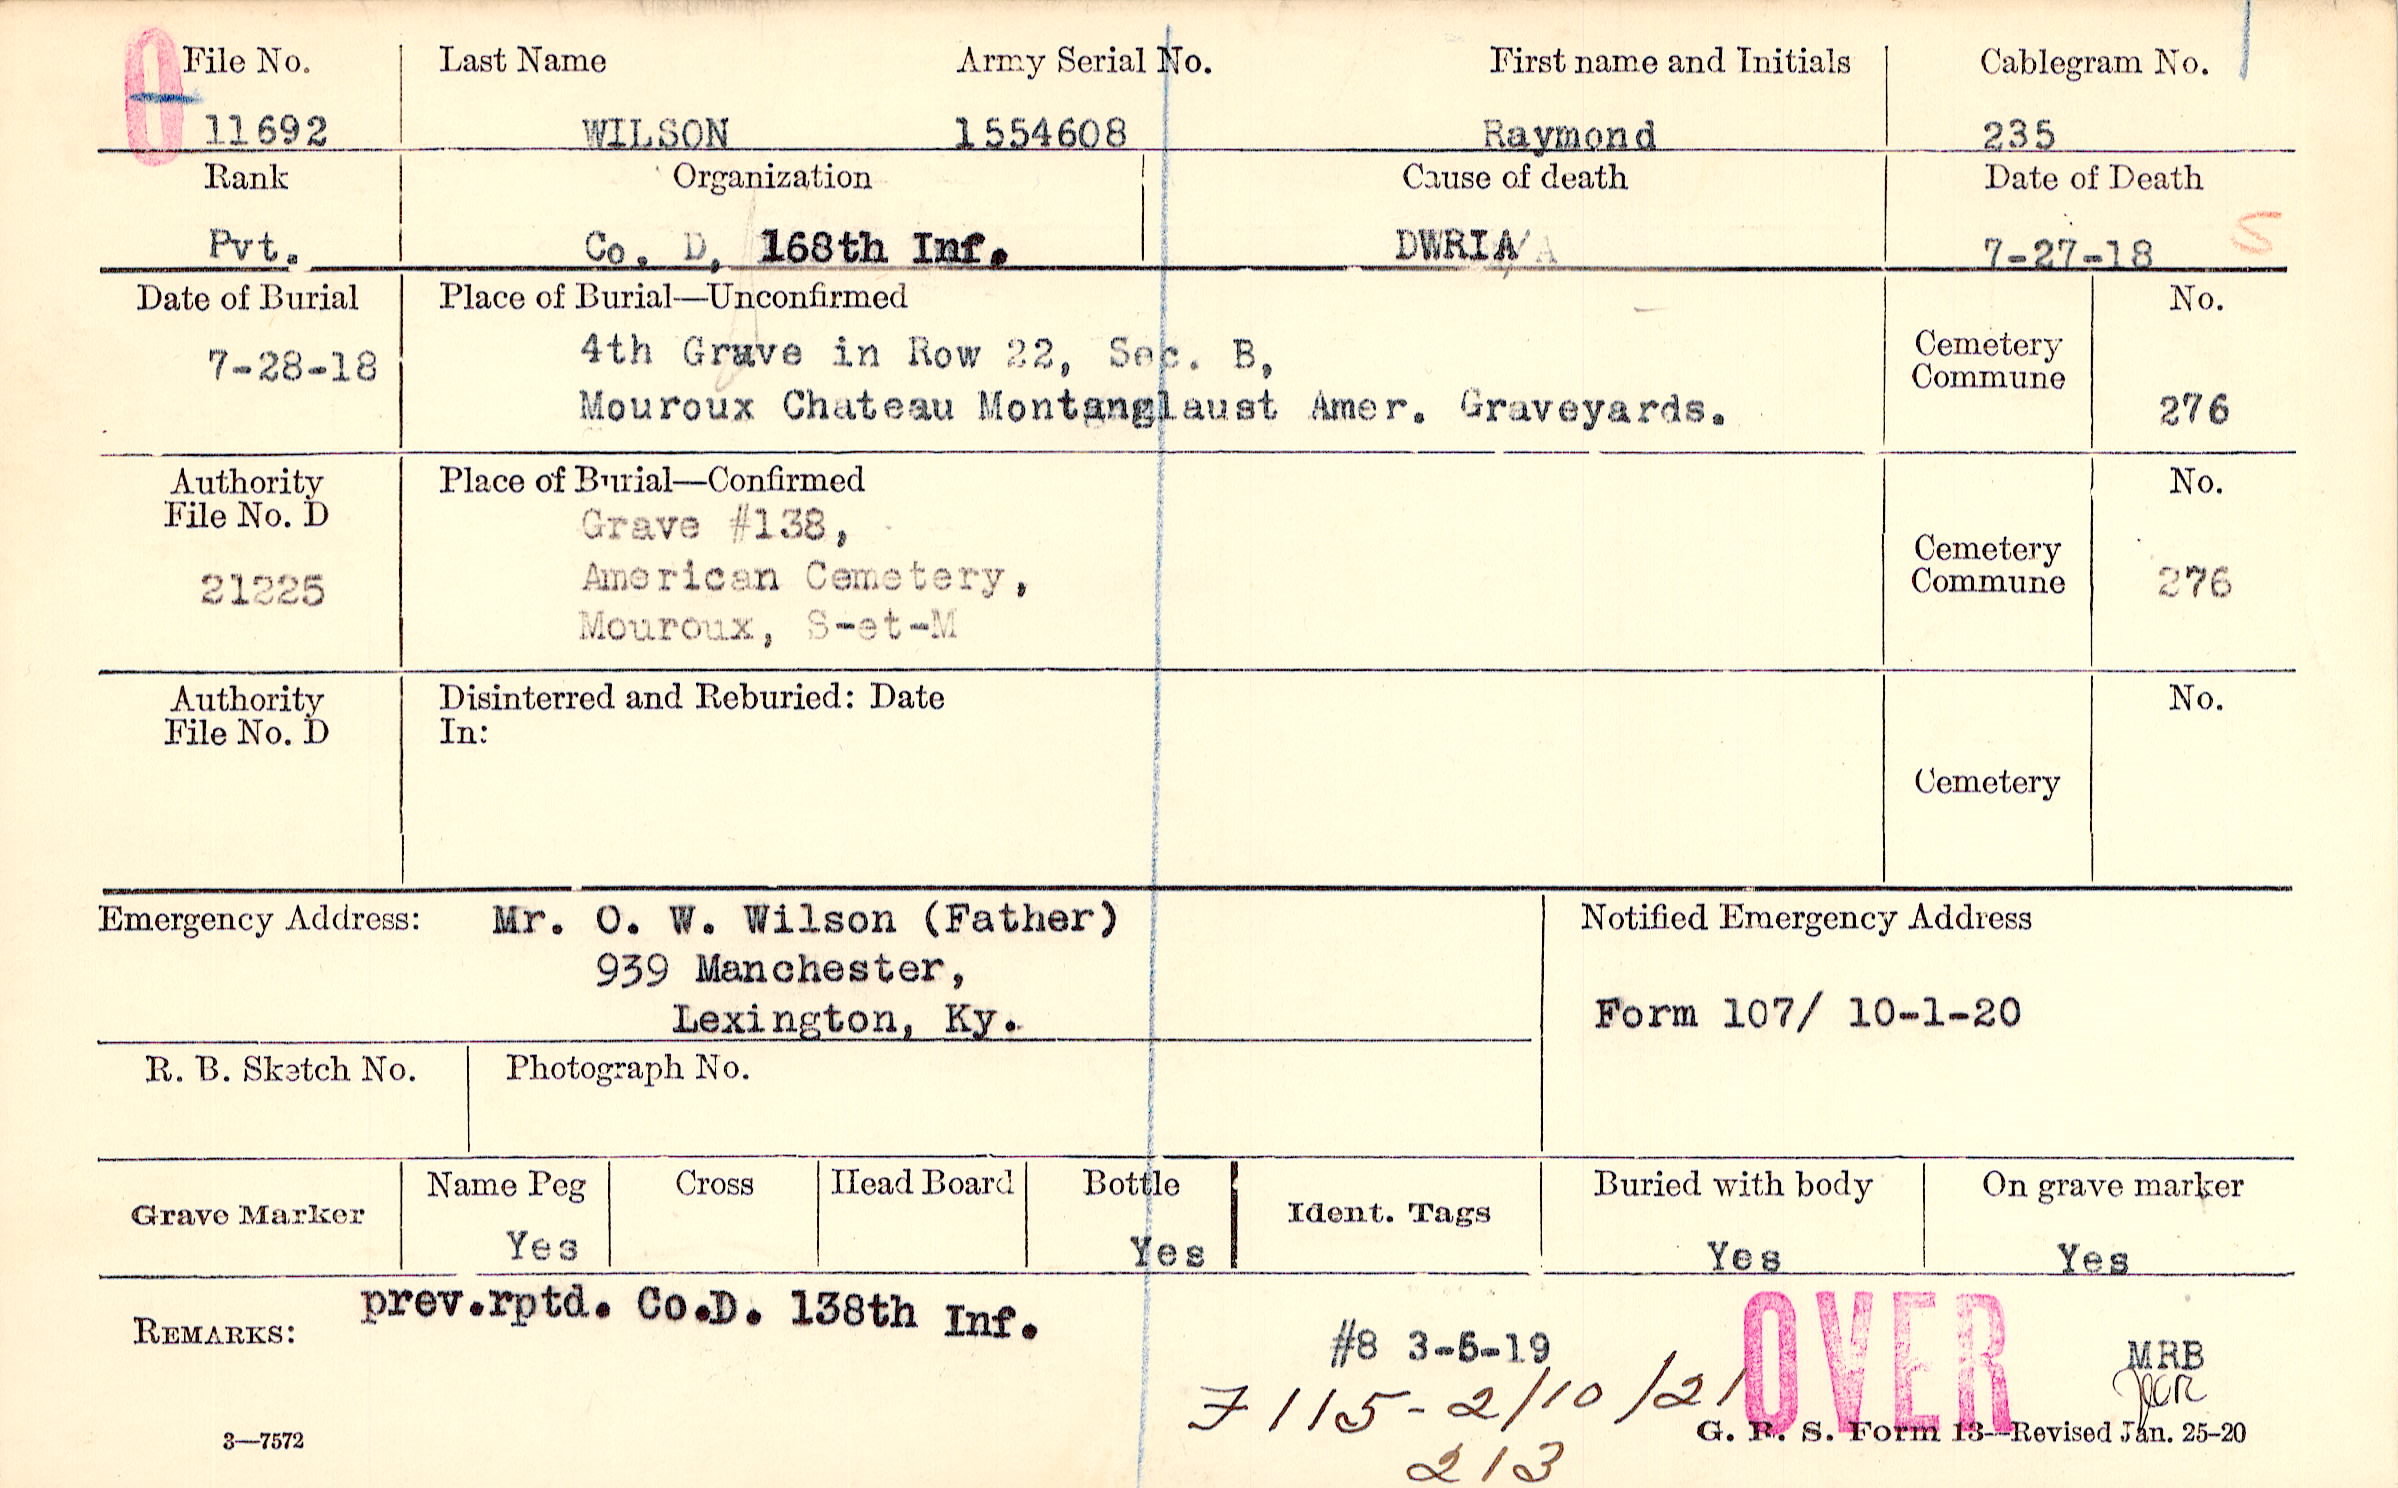 File No. Last Name Army Serial No. First name and Initials Cablegram No.
11692 WILSON 1554608 Raymond 235
Rank Organization Cause of death Date of Death
Pvt. Co. D, 168th Inf. DWRIA 7-27-18 S
Date of Burial Place of Burial—Unconfirmed No.
7-28-18 4th Grave in Row 22, Sec. B, Cemetery Commune
Mouroux Chateau Montanglaust Amer. Graveyards. 276
Authority File No. D Place of Burial—Confirmed No.
Grave #138,
21225 American Cemetery, Cemetery Commune 276
Mouroux, S-et-M
Authority Disinterred and Reburied: Date No.
File No. D In:
Cemetery
Emergency Address: Mr. O. W. Wilson (Father) Notified Emergency Address
939 Manchester,
Lexington, Ky. Form 107/ 10-1-20
R. B. Sketch No. Photograph No.
Grave Marker Name Peg Cross Head Board Bottle Ident. Tags Buried with body On grave marker
Yes Yes Yes Yes
REMARKS: prev.rptd. Co.D. 138th Inf.
#8 3-5-19 OVER MRB
F 115 - 2/10/21
213
3—7572 G. R. S. Form 13—Revised Jan. 25-20